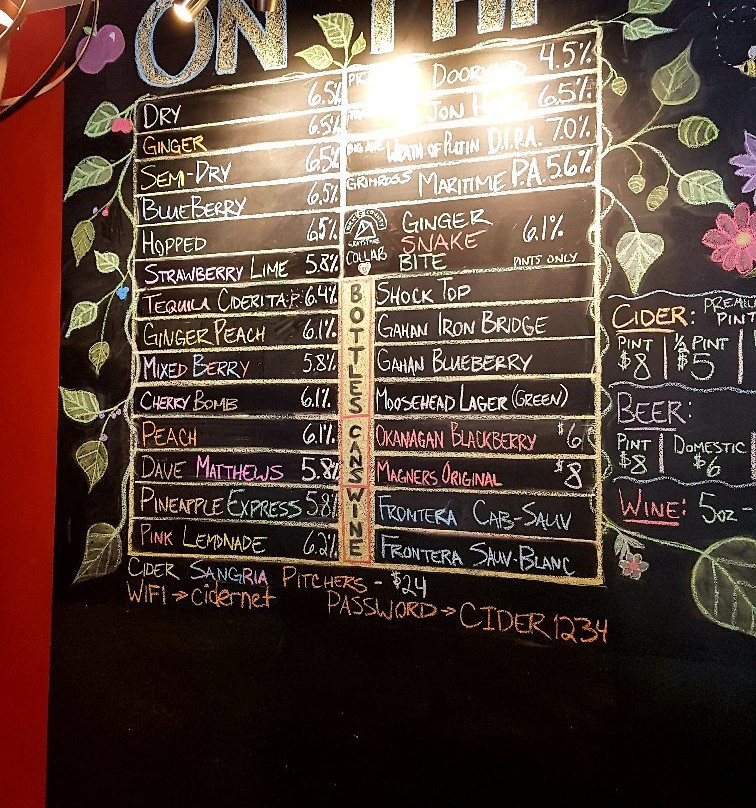 ON THE
DRY 6.5%
GINGER 6.5%
SEMI-DRY 6.5%
BLUEBERRY 6.5%
HOPPED 6.5%
STRAWBERRY LIME 5.8%
TEQUILA CIDERITA 6.4%
GINGER PEACH 6.1%
MIXED BERRY 5.8%
CHERRY BOMB 6.1%
PEACH 6.1%
DAVE MATTHEWS 5.8%
PINEAPPLE EXPRESS 5.8%
PINK LEMONADE 6.2%
4.5%
JON 6.5%
BIG AXE WRATH OF PUTIN D.I.P.A. 7.0%
GRIMROSS MARITIME P.A. 5.6%
COLLAB GINGER SNAKE BITE 6.1%
PINTS ONLY
BOTTLES
SHOCK TOP
GAHAN IRON BRIDGE
GAHAN BLUEBERRY
MOOSEHEAD LAGER (GREEN)
CANS
OKANAGAN BLACKBERRY $6
MAGNERS ORIGINAL $8
WINE
FRONTERA CAB-SAUV
FRONTERA SAUV-BLANC
CIDER SANGRIA PITCHERS - $24
WIFI → cidernet PASSWORD → CIDER1234
CIDER:
PINT ½ PINT
$8 $5
BEER:
PINT DOMESTIC
$8 $6
WINE: 5oz